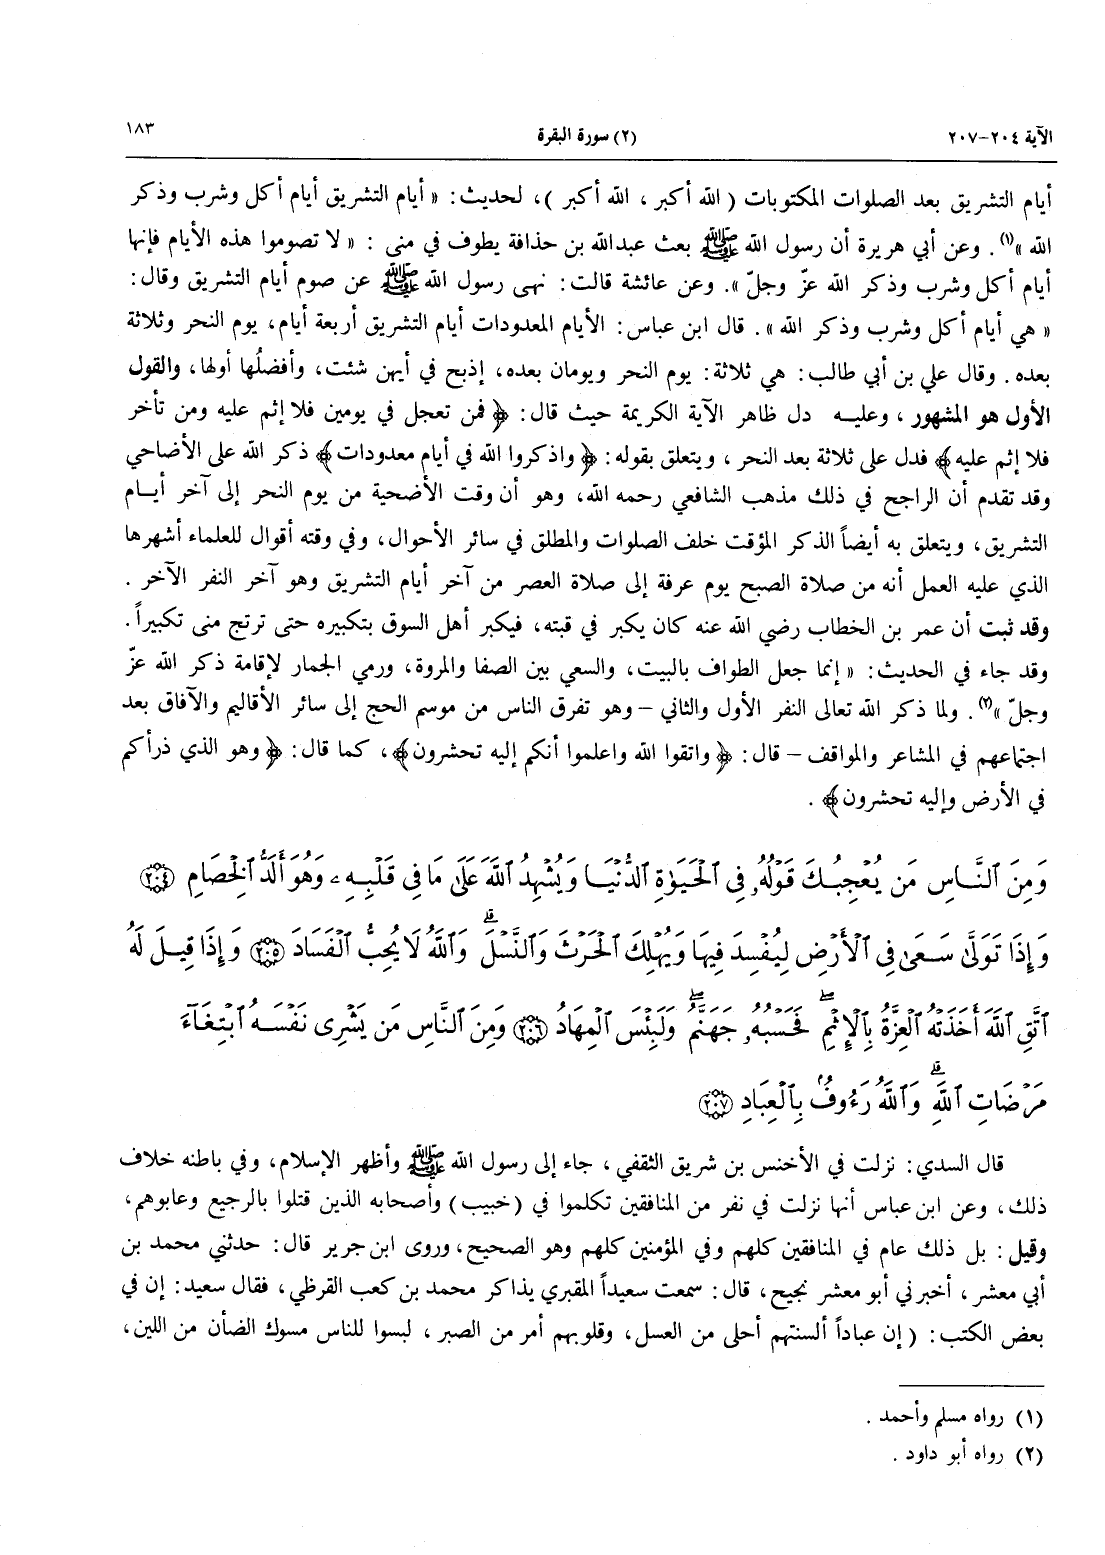 الآية ٢٠٤-٢٠٧ (٢) سورة البقرة ١٨٣
أيام التشريق بعد الصلوات المكتوبات ( الله أكبر ، الله أكبر )، لحديث: « أيام التشريق أيام أكل وشرب وذكر
الله »(١). وعن أبي هريرة أن رسول الله ﷺ بعث عبدالله بن حذافة يطوف في منى : « لا تصوموا هذه الأيام فإنها
أيام أكل وشرب وذكر الله عزّ وجلّ ». وعن عائشة قالت: نهى رسول الله ﷺ عن صوم أيام التشريق وقال:
« هي أيام أكل وشرب وذكر الله ». قال ابن عباس: الأيام المعدودات أيام التشريق أربعة أيام، يوم النحر وثلاثة
بعده. وقال علي بن أبي طالب: هي ثلاثة: يوم النحر ويومان بعده، إذبح في أيهن شئت، وأفضلُها أولها، والقول
الأول هو المشهور ، وعليه دل ظاهر الآية الكريمة حيث قال: ﴿ فمن تعجل في يومين فلا إثم عليه ومن تأخر
فلا إثم عليه﴾ فدل على ثلاثة بعد النحر ، ويتعلق بقوله: ﴿ واذكروا الله في أيام معدودات﴾ ذكر الله على الأضاحي
وقد تقدم أن الراجح في ذلك مذهب الشافعي رحمه الله، وهو أن وقت الأضحية من يوم النحر إلى آخر أيام
التشريق، ويتعلق به أيضاً الذكر المؤقت خلف الصلوات والمطلق في سائر الأحوال، وفي وقته أقوال للعلماء أشهرها
الذي عليه العمل أنه من صلاة الصبح يوم عرفة إلى صلاة العصر من آخر أيام التشريق وهو آخر النفر الآخر .
وقد ثبت أن عمر بن الخطاب رضي الله عنه كان يكبر في قبته، فيكبر أهل السوق بتكبيره حتى ترتج منى تكبيراً.
وقد جاء في الحديث: « إنما جعل الطواف بالبيت، والسعي بين الصفا والمروة، ورمي الجمار لإقامة ذكر الله عزّ
وجلّ »(٢). ولما ذكر الله تعالى النفر الأول والثاني – وهو تفرق الناس من موسم الحج إلى سائر الأقاليم والآفاق بعد
اجتماعهم في المشاعر والمواقف – قال: ﴿ واتقوا الله واعلموا أنكم إليه تحشرون﴾، كما قال: ﴿ وهو الذي ذرأكم
في الأرض وإليه تحشرون﴾ .
وَمِنَ ٱلنَّاسِ مَن يُعْجِبُكَ قَوْلُهُۥ فِى ٱلْحَيَوٰةِ ٱلدُّنْيَا وَيُشْهِدُ ٱللَّهَ عَلَىٰ مَا فِى قَلْبِهِۦ وَهُوَ أَلَدُّ ٱلْخِصَامِ ﴿٢٠٤﴾
وَإِذَا تَوَلَّىٰ سَعَىٰ فِى ٱلْأَرْضِ لِيُفْسِدَ فِيهَا وَيُهْلِكَ ٱلْحَرْثَ وَٱلنَّسْلَ ۗ وَٱللَّهُ لَا يُحِبُّ ٱلْفَسَادَ ﴿٢٠٥﴾ وَإِذَا قِيلَ لَهُ
ٱتَّقِ ٱللَّهَ أَخَذَتْهُ ٱلْعِزَّةُ بِٱلْإِثْمِ ۖ فَحَسْبُهُۥ جَهَنَّمُ ۖ وَلَبِئْسَ ٱلْمِهَادُ ﴿٢٠٦﴾ وَمِنَ ٱلنَّاسِ مَن يَشْرِى نَفْسَهُ ٱبْتِغَآءَ
مَرْضَاتِ ٱللَّهِ ۗ وَٱللَّهُ رَءُوفٌۢ بِٱلْعِبَادِ ﴿٢٠٧﴾
قال السدي: نزلت في الأخنس بن شريق الثقفي ، جاء إلى رسول الله ﷺ وأظهر الإسلام، وفي باطنه خلاف
ذلك، وعن ابن عباس أنها نزلت في نفر من المنافقين تكلموا في (خبيب) وأصحابه الذين قتلوا بالرجيع وعابوهم،
وقيل: بل ذلك عام في المنافقين كلهم وفي المؤمنين كلهم وهو الصحيح، وروى ابن جرير قال: حدثني محمد بن
أبي معشر ، أخبرني أبو معشر نجيح، قال: سمعت سعيداً المقبري يذاكر محمد بن كعب القرظي، فقال سعيد: إن في
بعض الكتب: ( إن عباداً ألسنتهم أحلى من العسل، وقلوبهم أمر من الصبر ، لبسوا للناس مسوك الضأن من اللين،
(١) رواه مسلم وأحمد .
(٢) رواه أبو داود .